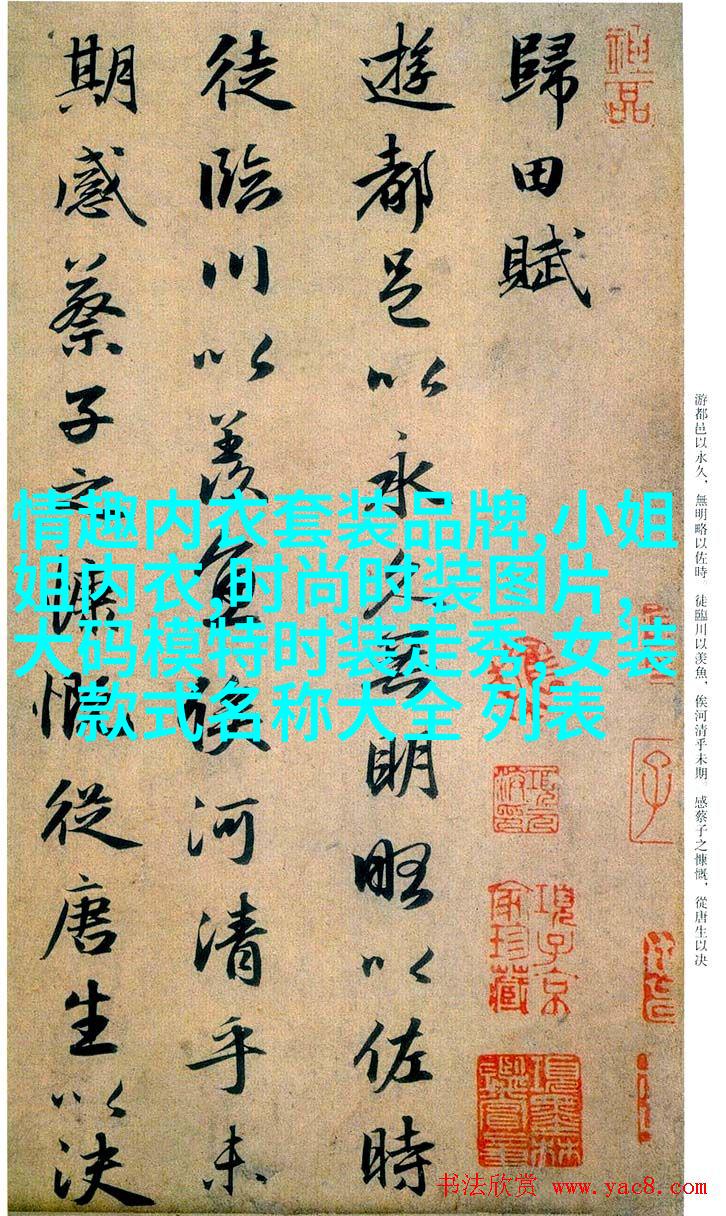 歸田賦
遊都邑以永久無明略以佐時
徒臨川以羨魚俟河清乎未
期感蔡子之慷慨從唐生以決
游都邑以永久，無明略以佐時。徒臨川以羨魚，俟河清乎未期。感蔡子之慷慨，從唐生以决
情趣内衣套装品牌,小姐
姐内衣,时尚时装图片,
大码模特时装走秀,女装
款式名称大全 列表
項子京
家珍藏
項墨林
鑑賞章
书法欣赏 www.yac8.com